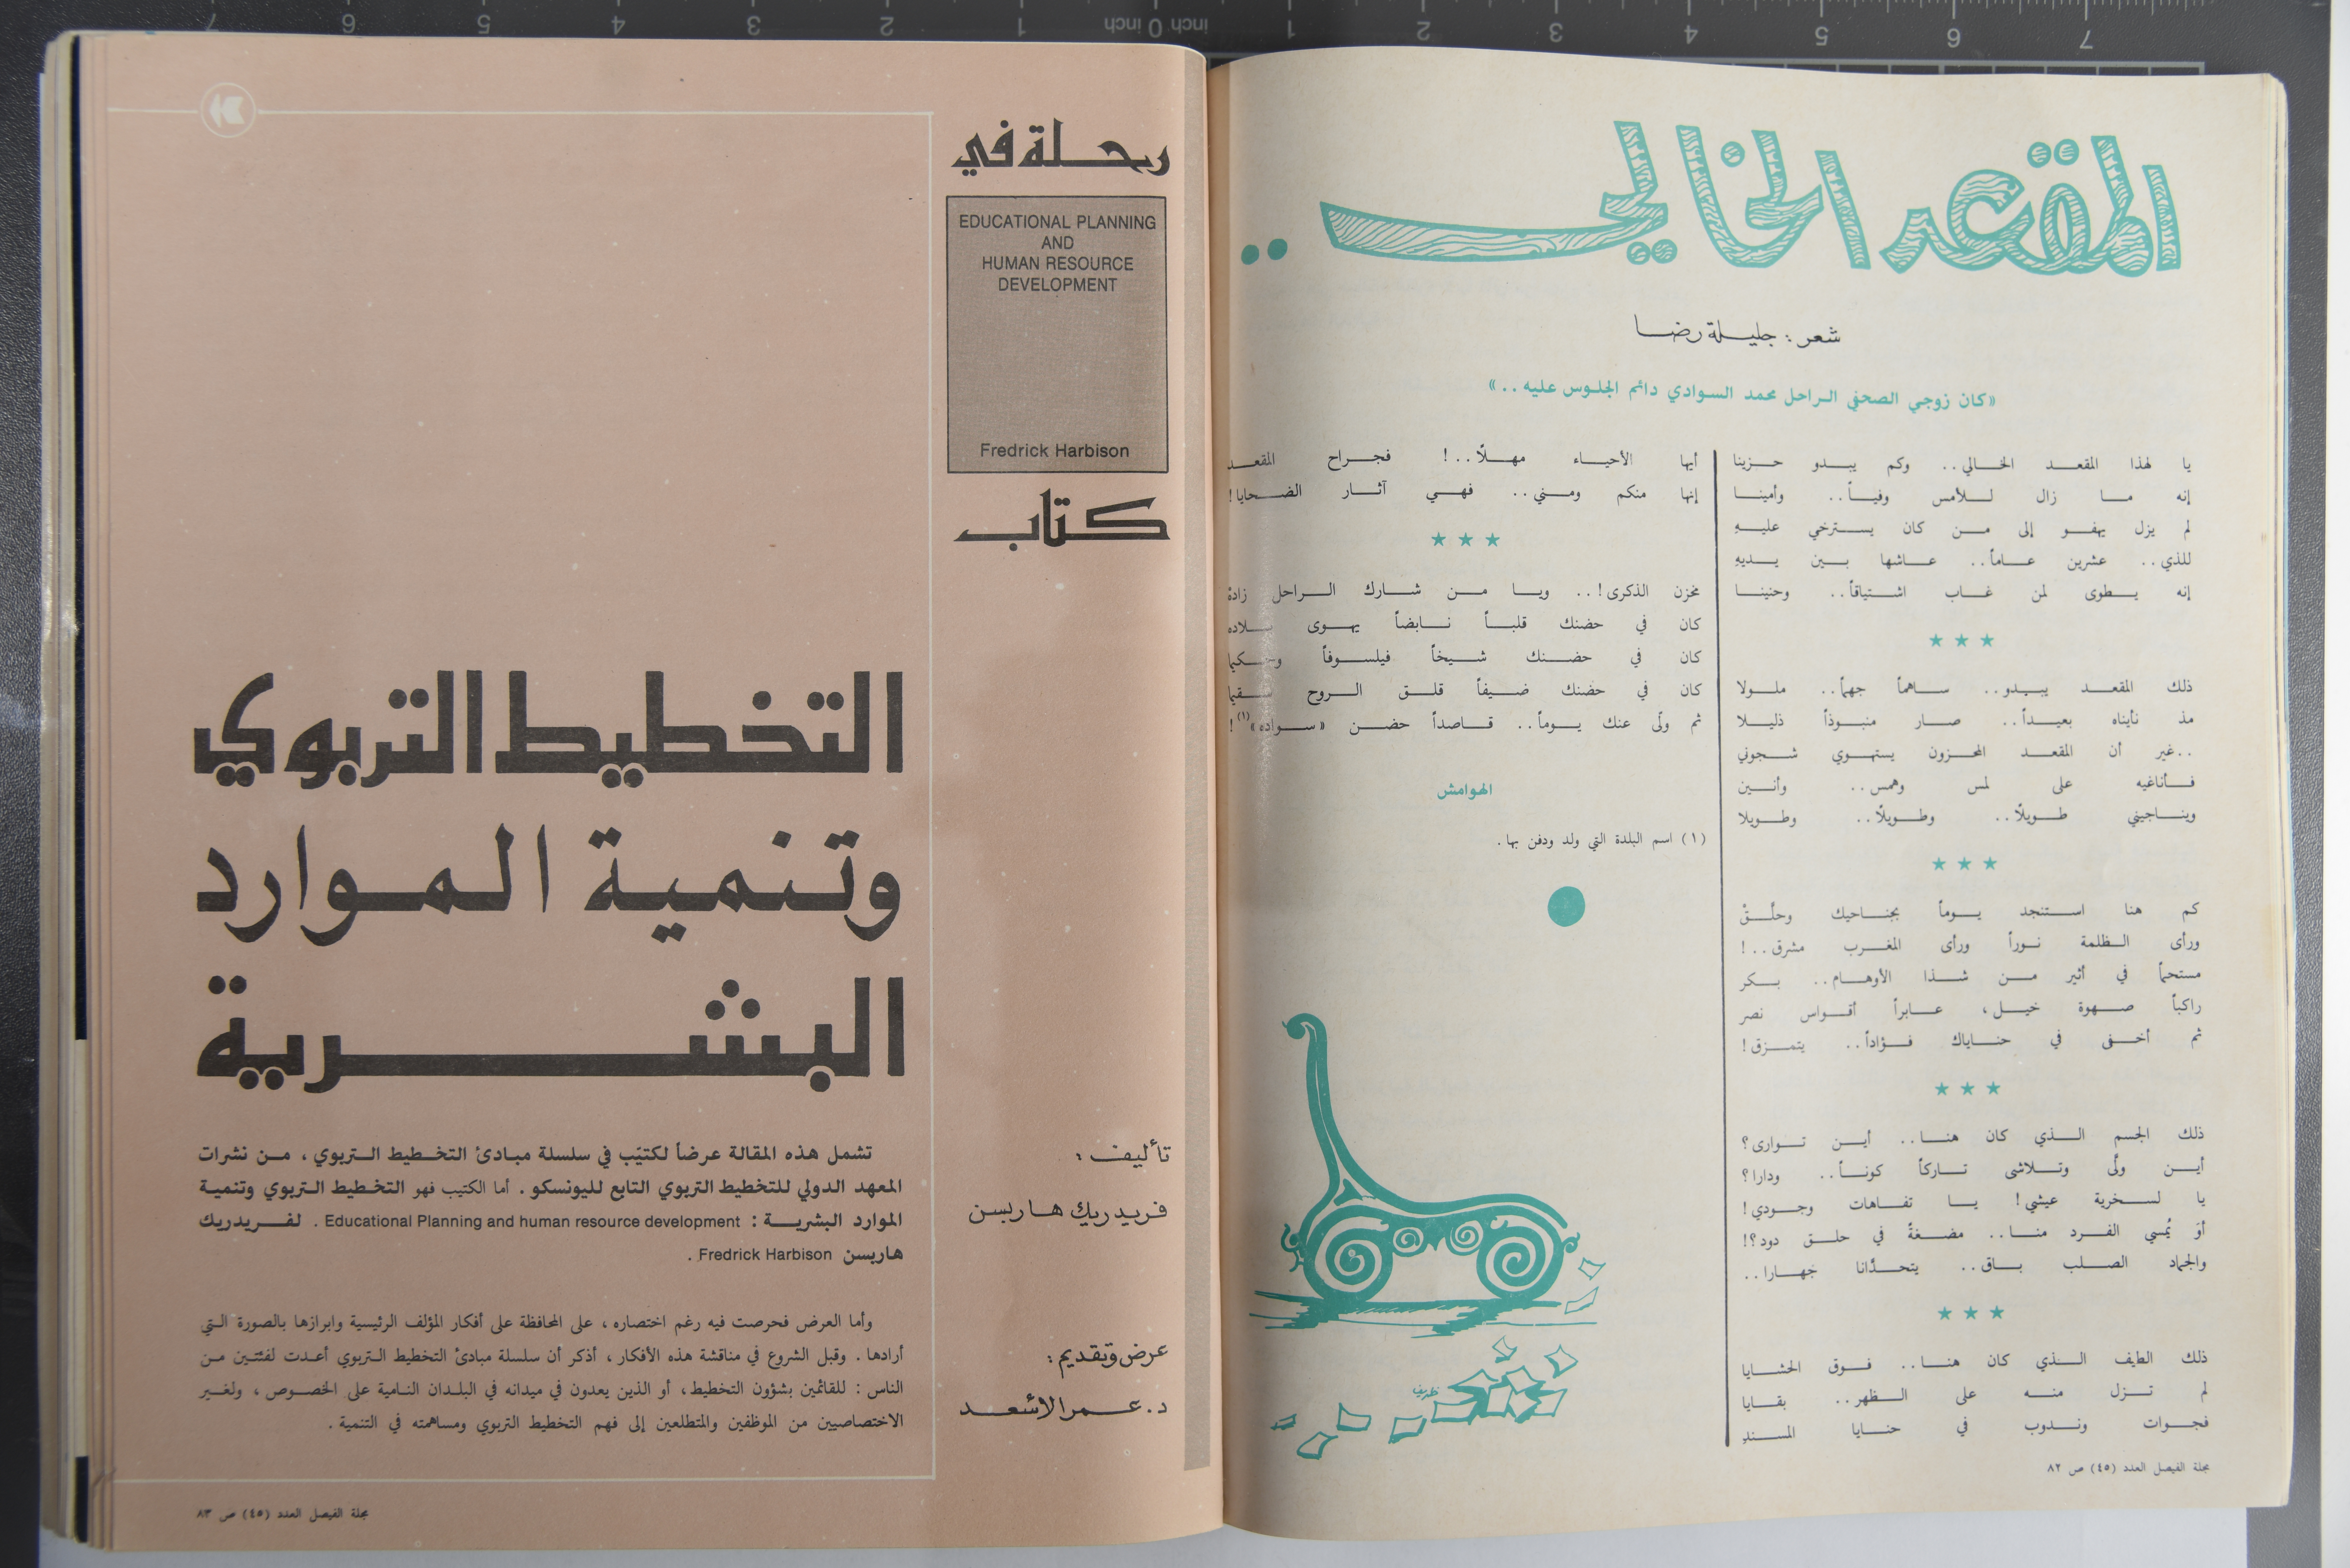 المقعد الخالي ..
شعر : جليلة رضا
«كان زوجي الصحفي الراحل محمد السوادي دائم الجلوس عليه ..»
يا لهذا المقعد الخالي .. وكم يبدو حزينا
إنه ما زال للأمس وفياً .. وأمينا
لم يزل يهفو إلى من كان يسترخي عليهِ
للذي .. عشرين عاماً .. عاشها بين يديهِ
إنه يطوى لمن غاب اشتياقاً .. وحنينا
★ ★ ★
ذلك المقعد يبدو .. ساهماً جهماً .. ملولا
مذ نأيناه بعيداً .. صار منبوذاً ذليلا
.. غير أن المقعد المحزون يستهوي شجوني
فأناغيه على لمس وهمس .. وأنين
ويناجيني طويلًا .. وطويلًا .. وطويلا
★ ★ ★
كم هنا استنجد يوماً بجناحيك وحلّقْ
ورأى الظلمة نوراً ورأى المغرب مشرق .. !
مستحماً في أثير من شذا الأوهام .. بكر
راكباً صهوة خيل ، عابراً أقواس نصر
ثم أخفى في حناياك فؤاداً .. يتمزق !
★ ★ ★
ذلك الجسم الذي كان هنا .. أين توارى ؟
أين ولّى وتلاشى تاركاً كوناً .. ودارا ؟
يا لسخرية عيشي ! يا تفاهات وجودي !
أوَ يُمسي الفرد منا .. مضغةً في حلق دود ؟!
والجماد الصلب باق .. يتحدّانا جَهارا ..
★ ★ ★
ذلك الطيف الذي كان هنا .. فوق الحشايا
لم تزل منه على الظهر .. بقايا
فجوات وندوب في حنايا المسندِ
أيها الأحياء مهلًا .. ! فجراح المقعد
إنها منكم ومني .. فهي آثار الضحايا !
★ ★ ★
مخزن الذكرى ! .. ويا من شارك الراحل زادهْ
كان في حضنك قلباً نابضاً يهوى بلاده
كان في حضنك شيخاً فيلسوفاً وحكيما
كان في حضنك ضيفاً قلق الروح سقيما
ثم ولّى عنك يوماً .. قاصداً حضن «سواده» (١) !
الهوامش
(١) اسم البلدة التي ولد ودفن بها .
ظريف
مجلة الفيصل العدد (٤٥) ص ٨٢
رحلة في
EDUCATIONAL PLANNING
AND
HUMAN RESOURCE
DEVELOPMENT
Fredrick Harbison
كتاب
تأليف :
فريدريك هاربسن
عرض وتقديم :
د. عمر الأسعد
التخطيط التربوي
وتنمية الموارد
البشرية
تشمل هذه المقالة عرضاً لكتيّب في سلسلة مبادئ التخطيط التربوي ، من نشرات
المعهد الدولي للتخطيط التربوي التابع لليونسكو . أما الكتيب فهو التخطيط التربوي وتنمية
الموارد البشرية : Educational Planning and human resource development . لفريدريك
هاربسن Fredrick Harbison .
وأما العرض فحرصت فيه رغم اختصاره ، على المحافظة على أفكار المؤلف الرئيسية وابرازها بالصورة التي
أرادها . وقبل الشروع في مناقشة هذه الأفكار ، أذكر أن سلسلة مبادئ التخطيط التربوي أعدت لفئتين من
الناس : للقائمين بشؤون التخطيط ، أو الذين يعدون في ميدانه في البلدان النامية على الخصوص ، ولغير
الاختصاصيين من الموظفين والمتطلعين إلى فهم التخطيط التربوي ومساهمته في التنمية .
مجلة الفيصل العدد (٤٥) ص ٨٣
7 6 5 4 3 2 1 inch 0 inch 1 2 3 4 5 6 7